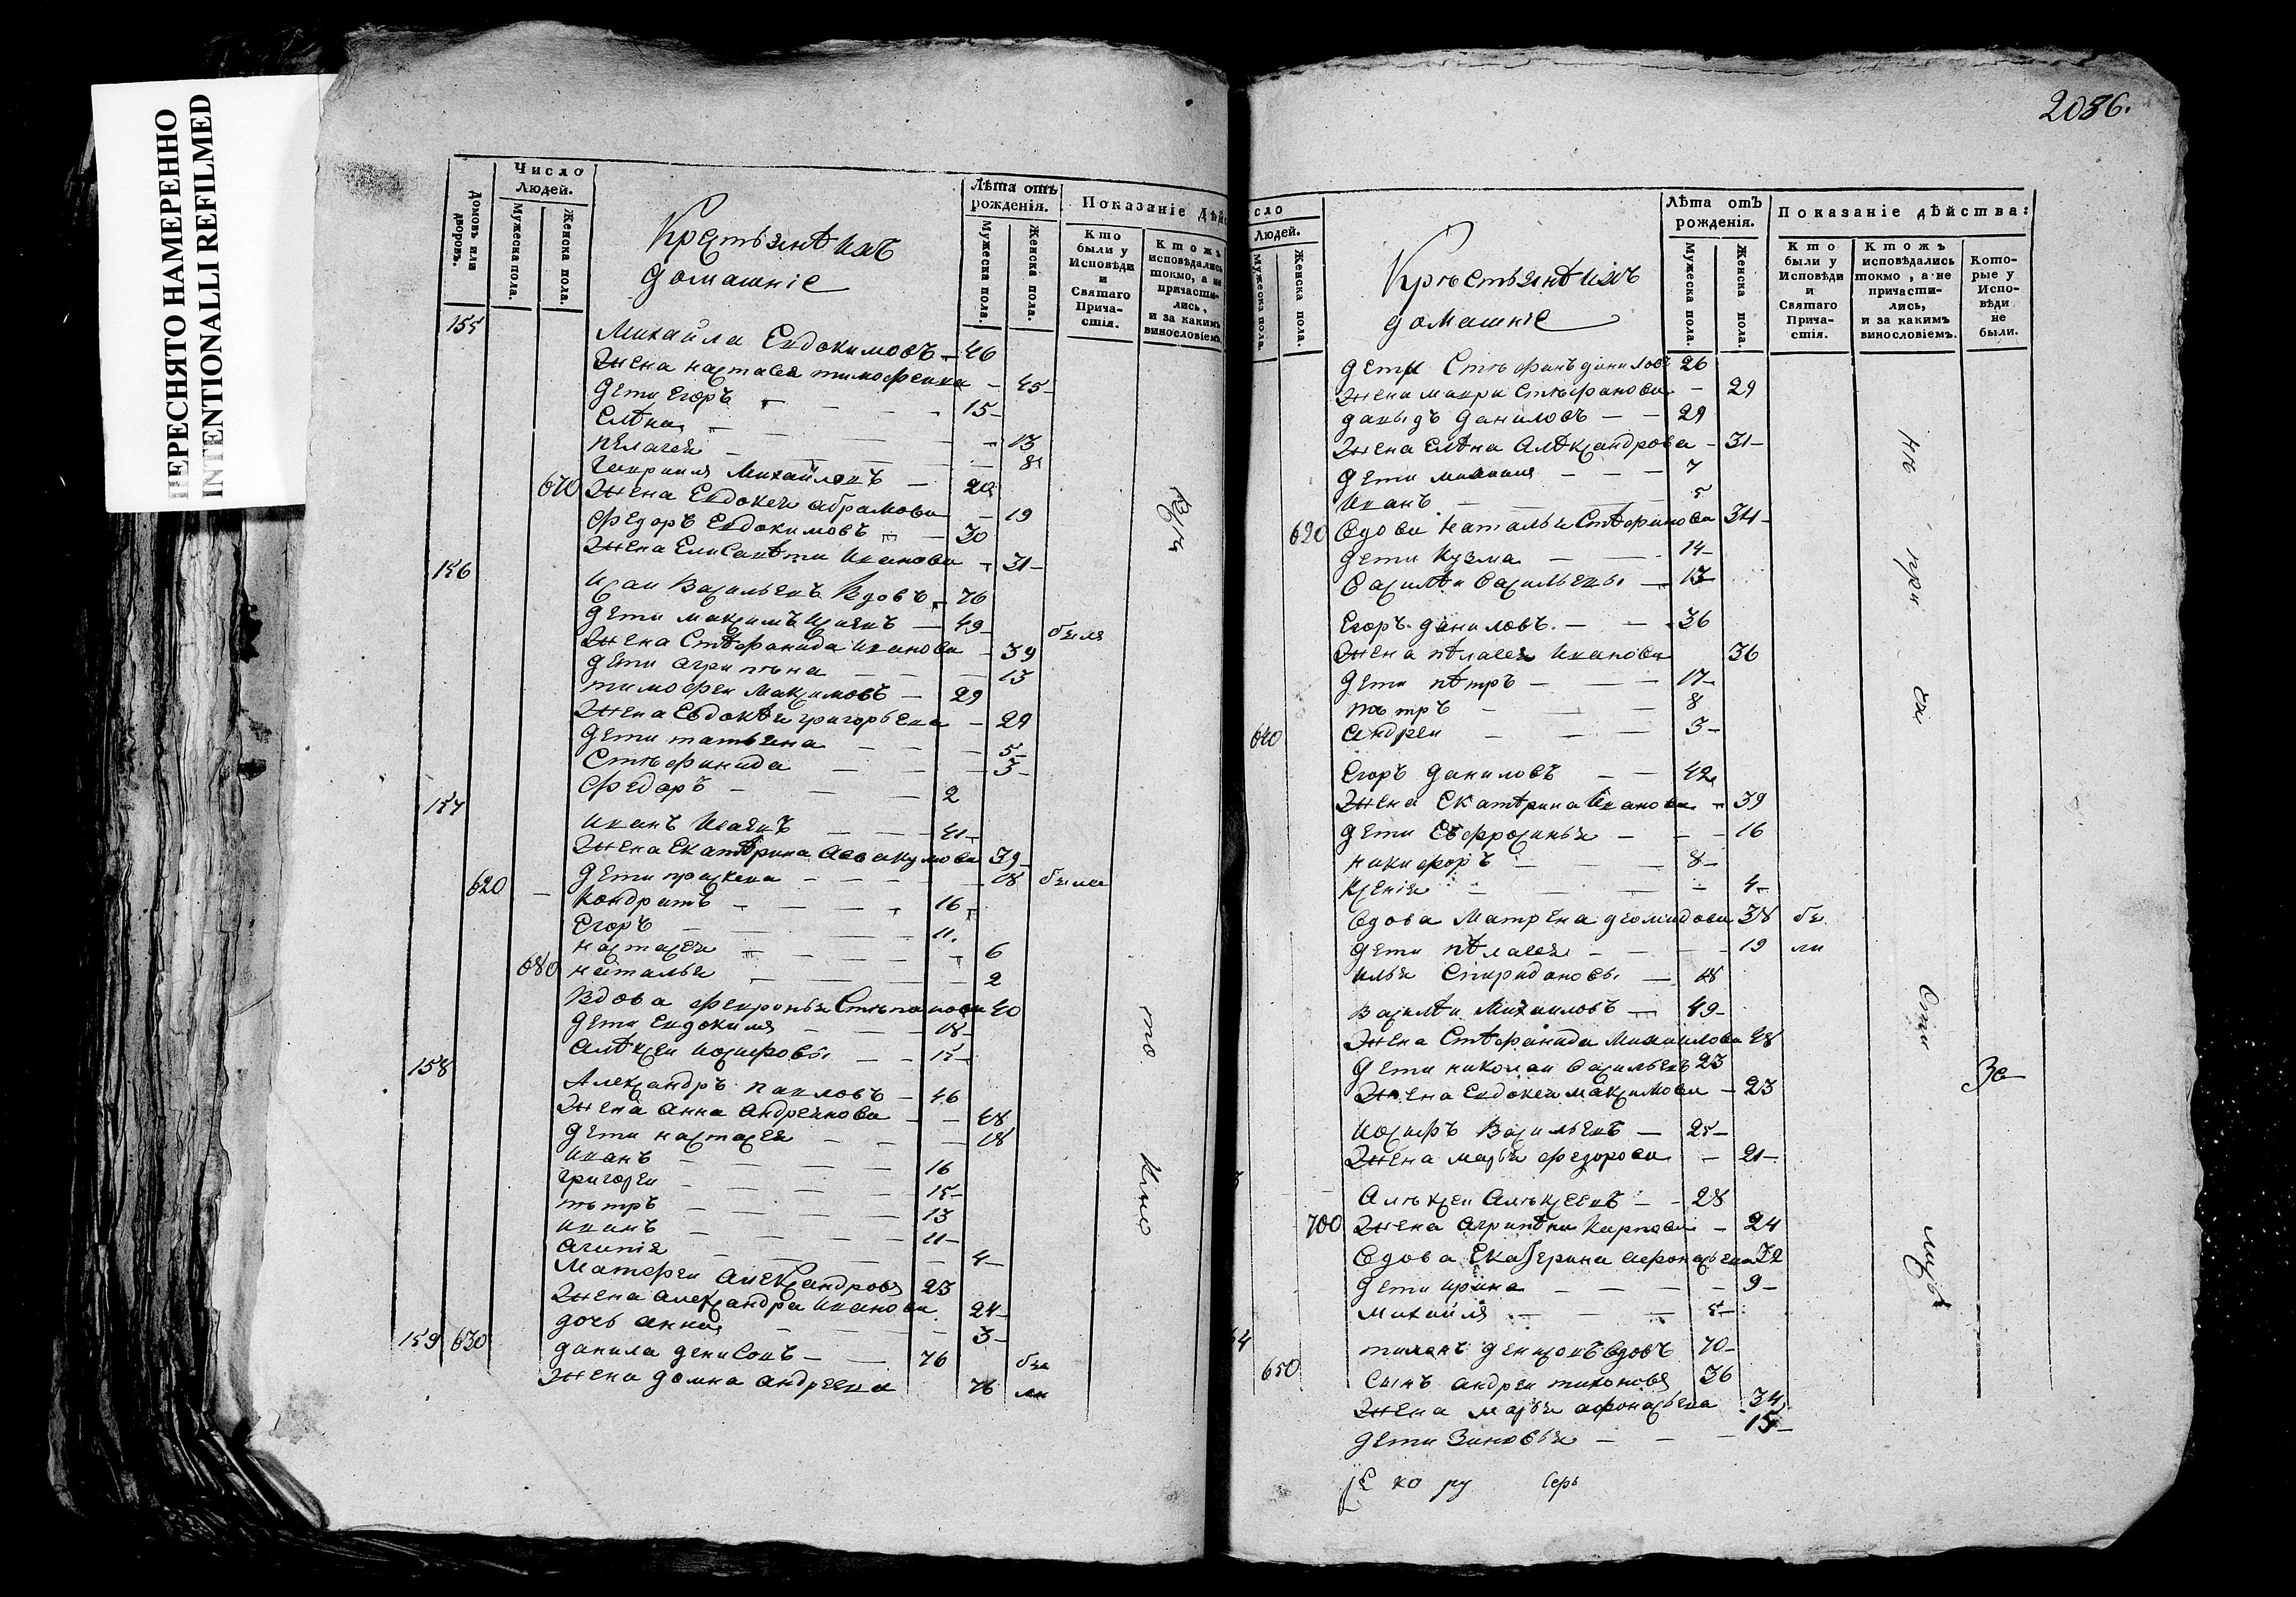 ПЕРЕСНЯТО НАМЕРЕННО
INTENTIONALLI REFILMED
2036.
Домовъ или дворовъ.
Число Людей.
Мужеска пола.
Женска пола.
Крестьянѣ ихъ
домашніе
Лѣта отъ рожденія.
Мужеска пола.
Женска пола.
Показаніе Дѣй
Кто были у Исповѣди и Святаго Причастія.
Ктожъ исповѣдались токмо, а не причастились, и за какимъ винословіемъ.
155
Михайла Евдокимовъ 46
Жена настасея тимофеева 45
дети Егоръ 15
Елѣна 13
пелагея 8
Гаврила Михайловъ 20
670 Жена Евдокея абрамова 19
Федоръ Евдокимовъ 30
Жена Елисавѣта Иванова 31
156
Исаи Васильевъ Вдовъ 76
дети максимъ Исаевъ 49 были
Жена Стѣфанида Иванова 39
дети агрипена 13
тимофеи Максимовъ 29
Жена Евдокѣя григорьева 29
дети татьяна 5
Стефанида 3
Федоръ 2
157
Иванъ Исаевъ 41
Жена Екатѣрина Аввакумова 39
620 дети праскева 18 были
Кондратъ 16
Егоръ 11
настасея 6
680 наталья 2
Вдова февронья Степанова 40
дети Евдокимъ 18
Алѣксеи иосифовы 15
158
Александръ павловъ 46
Жена Анна Андреянова 48
дети настасея 18
Иванъ 16
григореи 15
петръ 13
иванъ 11
агапия 4
Матфеи Александровъ 23
Жена александра иванова 24
дочь анна 3
159 630 данила денисовъ 76 бы
Жена домна андреева 76 ли
Вси
то
Кмо
сло
Людей.
Мужеска пола.
Женска пола.
Крестьянѣ ихъ
домашніе
Лѣта отъ рожденія.
Мужеска пола.
Женска пола.
Показаніе дѣйства:
Кто были у Исповѣди и Святаго Причастія.
Ктожъ исповѣдались токмо, а не причастились, и за какимъ винословіемъ.
Которые у Исповѣди не были.
дети Стефанъ даниловъ 26
Жена мавра Стефанова 29
давыдъ даниловъ 29
Жена Елѣна Алѣксандрова 31
дети 7
Иванъ 5
620 вдова Наталья Стѣфанова 34
дети кузма 14
василѣи васильевы 13
Егоръ даниловъ 36
Жена пѣлагея Иванова 36
дети пѣтръ 17
петръ 8
640 андреи 3
Егоръ даниловъ 42
Жена Екатѣрина Иванова 39
дети Евфросинья 16
никифоръ 8
Ксения 4
вдова Матрена диомидова 38 бы
дети пѣлагея 19 ли
илья Спиридоновы 18
Василѣи Михаиловъ 49
Жена Стѣфанида Михаилова 48
дети николаи васильевъ 23
Жена Евдокея максимова 23
Иосифъ Васильевъ 25
Жена марья федорова 21
Алексеи Алексеевъ 28
700 Жена агрипѣна Карпова 24
вдова Екатерина афонасьева 32
дети ирина 9
Михаила 5
4
тихонъ денисовъ вдовъ 70
650 Сынъ андреи тихоновъ 36
Жена марья афонасьева 34
дети Зиновья 15
не
при
За
ко ру Серь